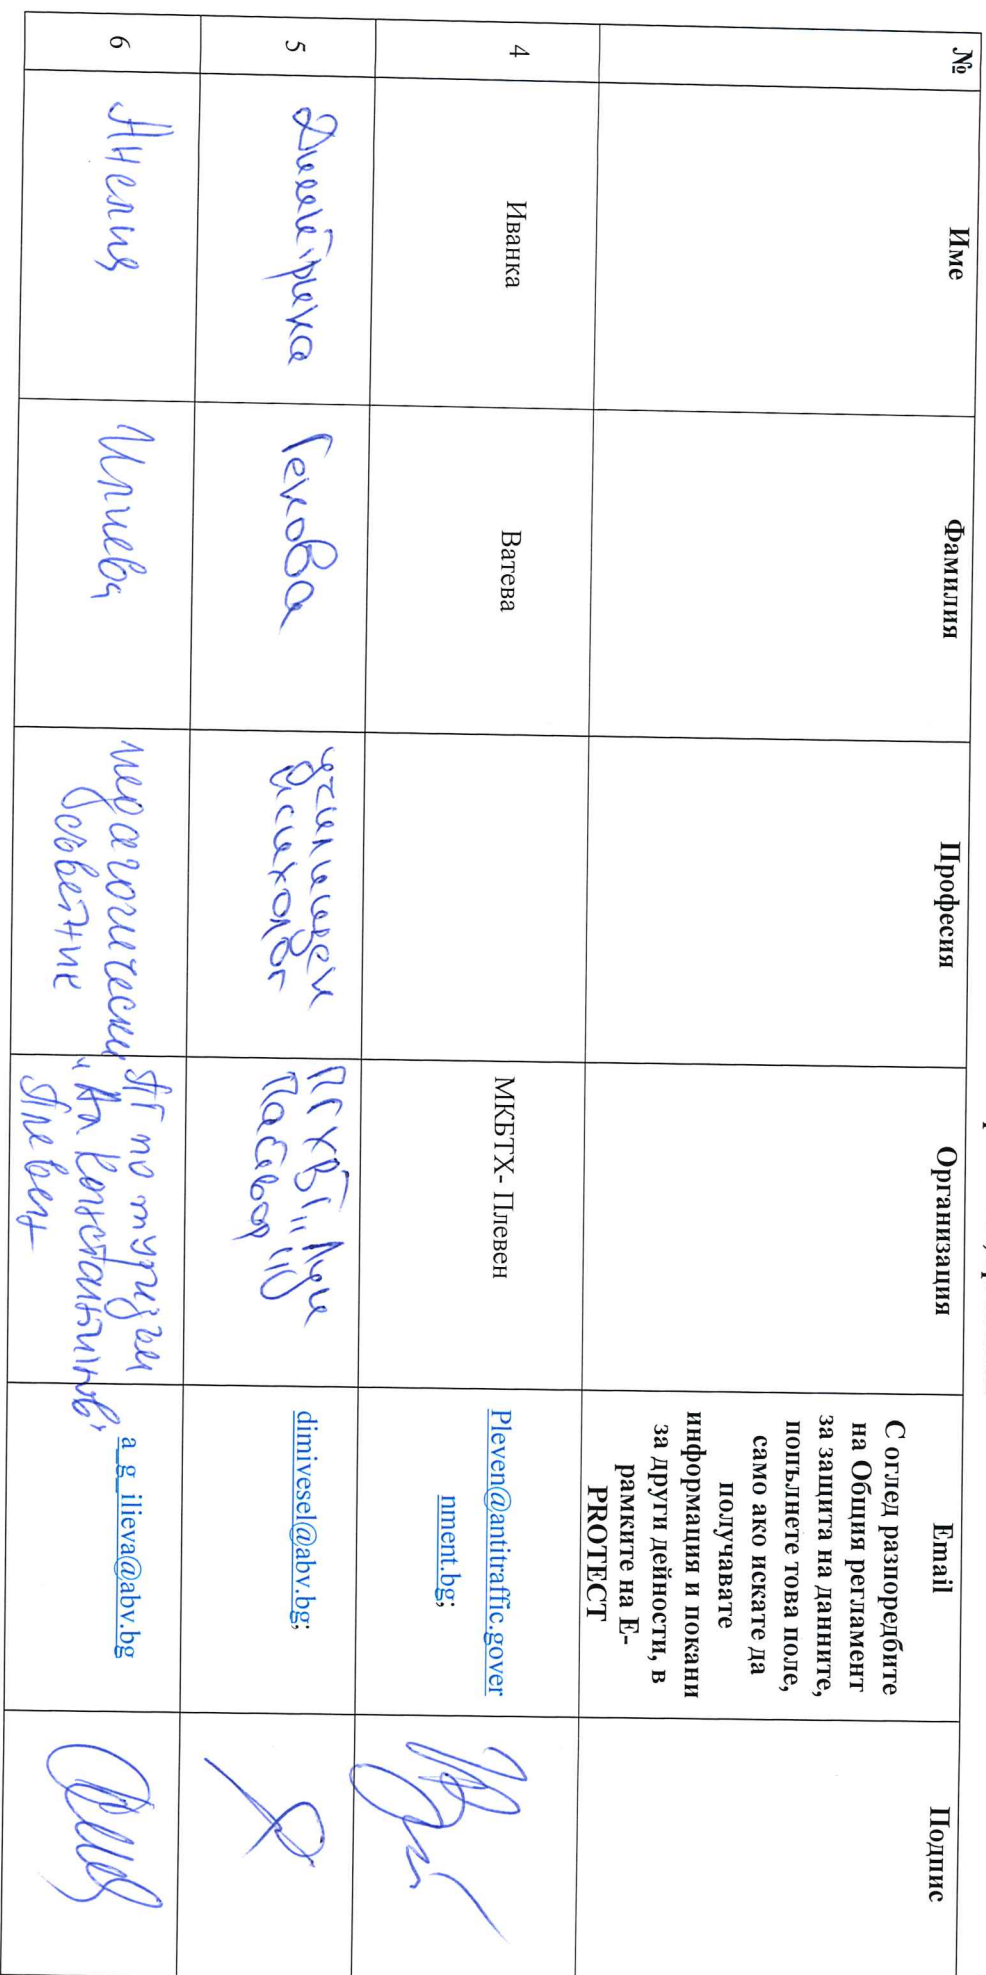 №
Име
Фамилия
Професия
Организация
Email
С оглед разпоредбите
на Общия регламент
за защита на данните,
попълнете това поле,
само ако искате да
получавате
информация и покани
за други дейности, в
рамките на Е-
PROTECT
Подпис
4
Иванка
Ватева
МКБТХ- Плевен
Pleven@antitraffic.gover
nment.bg;
5
Димитрина
Генова
училищен
психолог
ПГХВТ "Луи
Пастьор"
dimivesel@abv.bg;
6
Анелия
Илиева
педагогически
съветник
ПГ по туризъм
"Ал. Константинов"
Плевен
a_g_ilieva@abv.bg